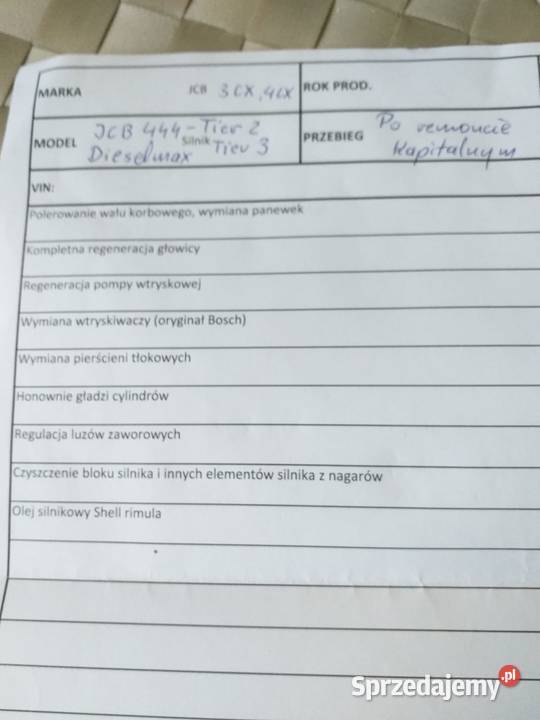 MARKA JCB 3CX, 4CX ROK PROD.
MODEL JCB 444 - Tier 2 Silnik Dieselmax Tier 3 PRZEBIEG Po remoncie kapitalnym
VIN:
Polerowanie wału korbowego, wymiana panewek
Kompletna regeneracja głowicy
Regeneracja pompy wtryskowej
Wymiana wtryskiwaczy (oryginał Bosch)
Wymiana pierścieni tłokowych
Honownie gładzi cylindrów
Regulacja luzów zaworowych
Czyszczenie bloku silnika i innych elementów silnika z nagarów
Olej silnikowy Shell rimula
Sprzedajemy.pl